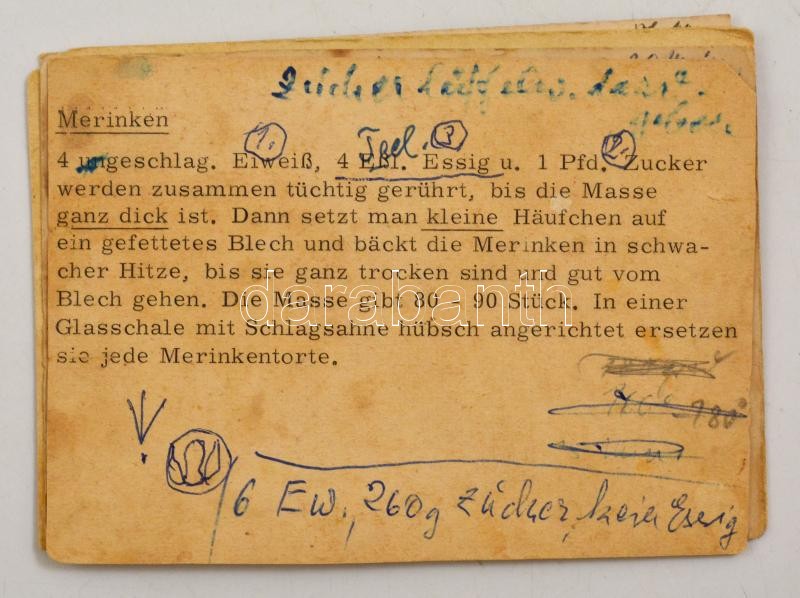 Zucker löffelw. dazu
geben.
Merinken
1. Teel. 3 2.
4 ungeschlag. Eiweiß, 4 Eßl. Essig u. 1 Pfd. Zucker
werden zusammen tüchtig gerührt, bis die Masse
ganz dick ist. Dann setzt man kleine Häufchen auf
ein gefettetes Blech und bäckt die Merinken in schwa-
cher Hitze, bis sie ganz trocken sind und gut vom
Blech gehen. Die Masse gibt 80 - 90 Stück. In einer
Glasschale mit Schlagsahne hübsch angerichtet ersetzen
sie jede Merinkentorte.
darabanth
180°
6 Ew., 260g Zucker, kein Essig